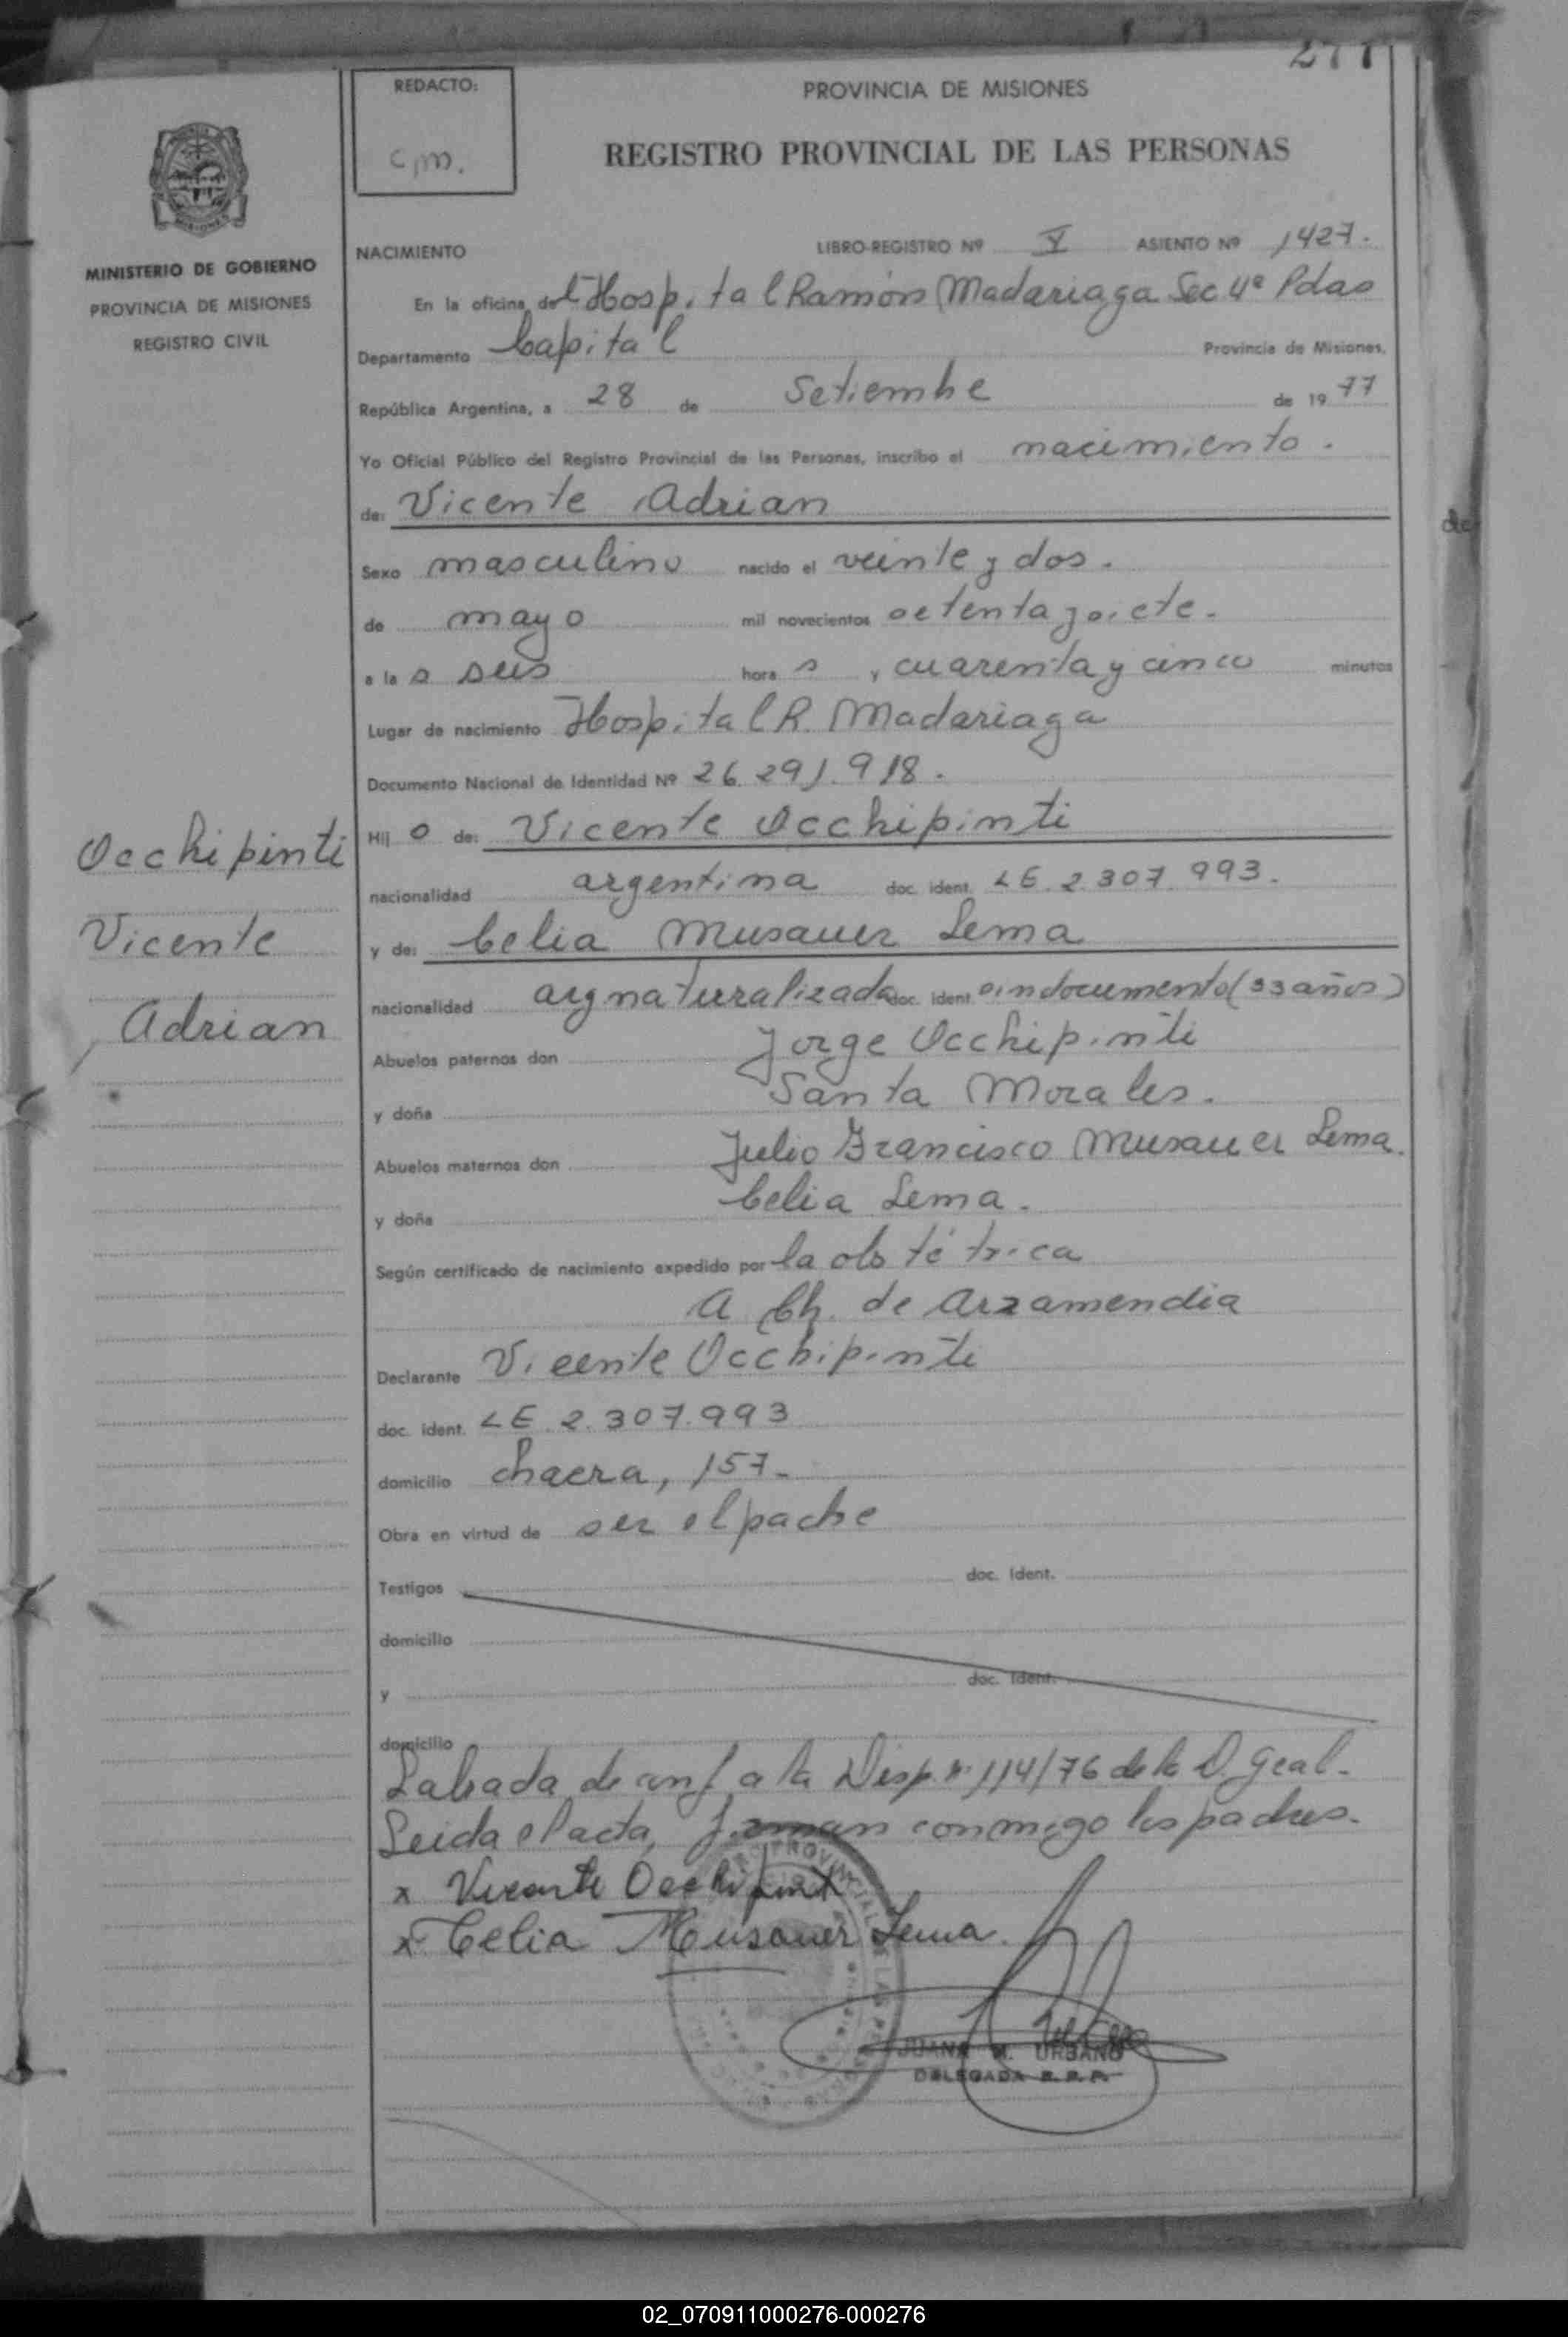 277
REDACTO:
cm.
PROVINCIA DE MISIONES
REGISTRO PROVINCIAL DE LAS PERSONAS
MINISTERIO DE GOBIERNO
PROVINCIA DE MISIONES
REGISTRO CIVIL
NACIMIENTO LIBRO-REGISTRO Nº V ASIENTO Nº 1427.
En la oficina del Hospital Ramón Madariaga Sec 4ª Pdas
Departamento Capital Provincia de Misiones,
República Argentina, a 28 de Setiembre de 1977
Yo Oficial Público del Registro Provincial de las Personas, inscribo el nacimiento.
de: Vicente Adrian
Sexo masculino nacido el veinte y dos.
de mayo mil novecientos setenta y siete.
a las seis horas y cuarenta y cinco minutos
Lugar de nacimiento Hospital R. Madariaga
Documento Nacional de Identidad Nº 26.291.918.
Hijo de: Vicente Occhipinti
nacionalidad argentina doc. ident. LE. 2.307.993.
y de: Celia Musauer Lema
nacionalidad arg naturalizada doc. ident. sin documento (33 años)
Abuelos paternos don Jorge Occhipinti
y doña Santa Morales.
Abuelos maternos don Julio Francisco Musauer Lema.
y doña Celia Lema.
Según certificado de nacimiento expedido por la obstétrica
A Ch. de Arzamendia
Declarante Vicente Occhipinti
doc. ident. LE. 2.307.993
domicilio chacra, 157.
Obra en virtud de ser el padre
Testigos doc. ident.
domicilio
y doc. ident.
domicilio
Labrada de conf a la Disp. nº 114/76 de la D. Gral.
Leida el acta, firman conmigo los padres.
x Vicente Occhipinti
x Celia Musauer Lema.
JUANA M. URBANO
DELEGADA R.P.P.
Occhipinti
Vicente
Adrian
de
02_070911000276-000276